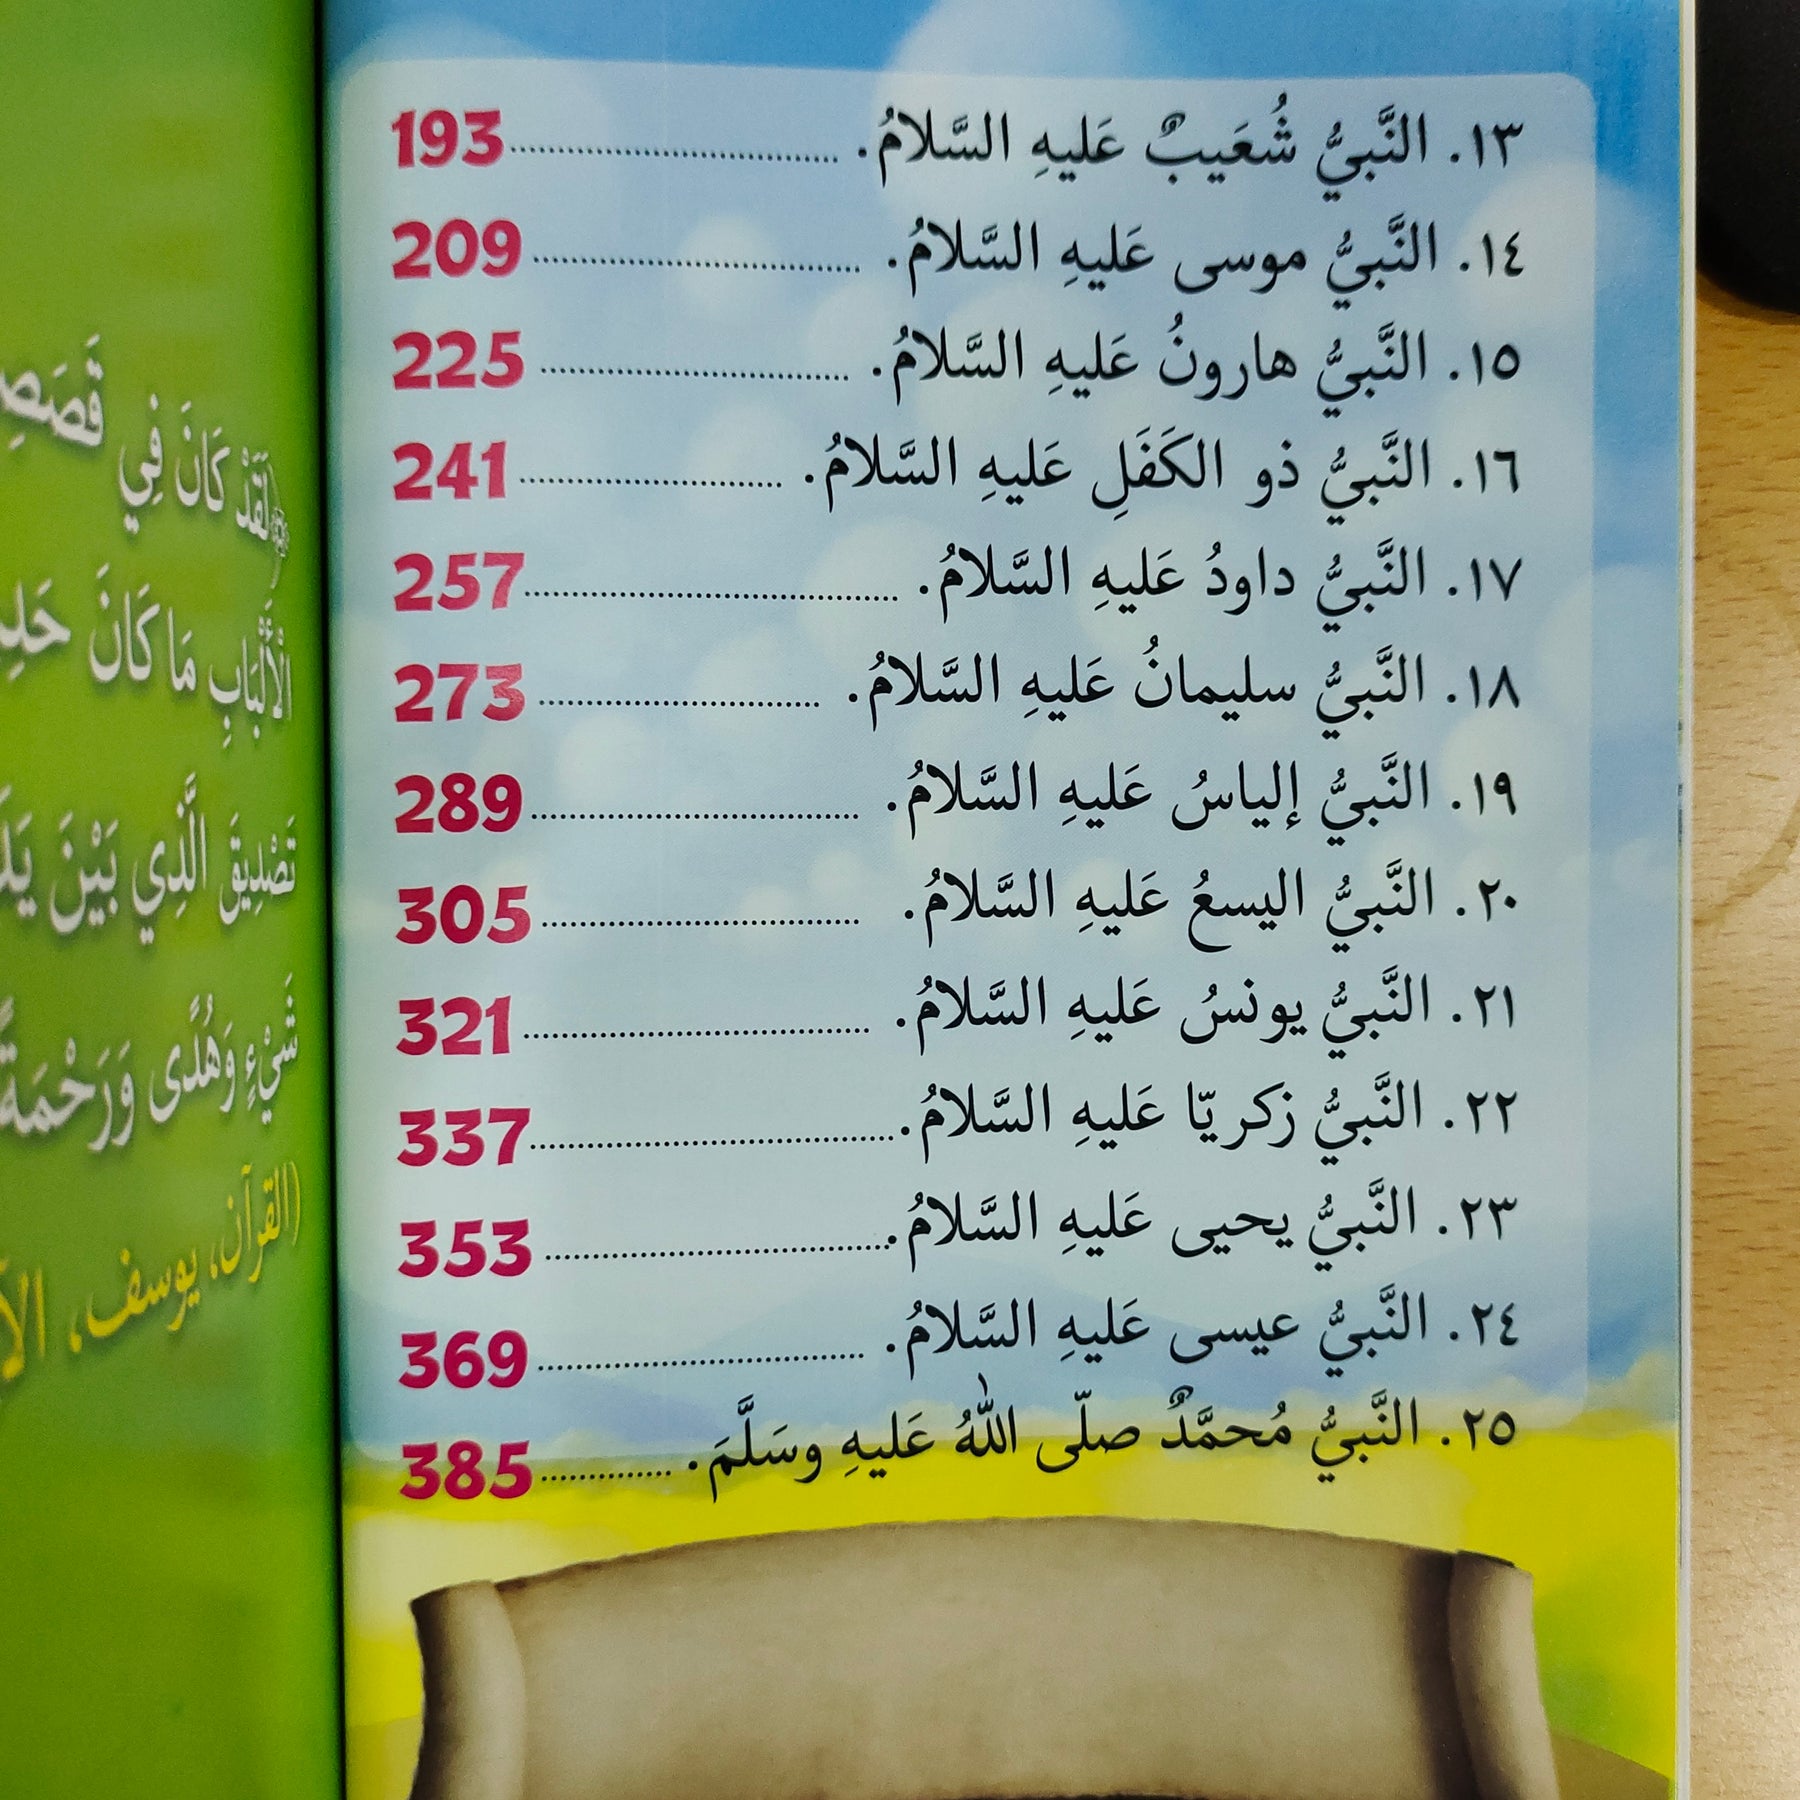 ١٣. النَّبيُّ شُعَيبٌ عَليهِ السَّلامُ. 193
١٤. النَّبيُّ موسى عَليهِ السَّلامُ. 209
١٥. النَّبيُّ هارونُ عَليهِ السَّلامُ. 225
١٦. النَّبيُّ ذو الكَفَلِ عَليهِ السَّلامُ. 241
١٧. النَّبيُّ داودُ عَليهِ السَّلامُ. 257
١٨. النَّبيُّ سليمانُ عَليهِ السَّلامُ. 273
١٩. النَّبيُّ إلياسُ عَليهِ السَّلامُ. 289
٢٠. النَّبيُّ اليسعُ عَليهِ السَّلامُ. 305
٢١. النَّبيُّ يونسُ عَليهِ السَّلامُ. 321
٢٢. النَّبيُّ زكريّا عَليهِ السَّلامُ. 337
٢٣. النَّبيُّ يحيى عَليهِ السَّلامُ. 353
٢٤. النَّبيُّ عيسى عَليهِ السَّلامُ. 369
٢٥. النَّبيُّ مُحمَّدٌ صلّى اللهُ عَليهِ وسَلَّمَ. 385
﴿لَقَدْ كَانَ فِي
الْأَلْبَابِ مَا كَانَ
تَصْدِيقَ الَّذِي بَيْنَ
شَيْءٍ وَهُدًى وَرَحْمَةً
(القرآن، يوسف،